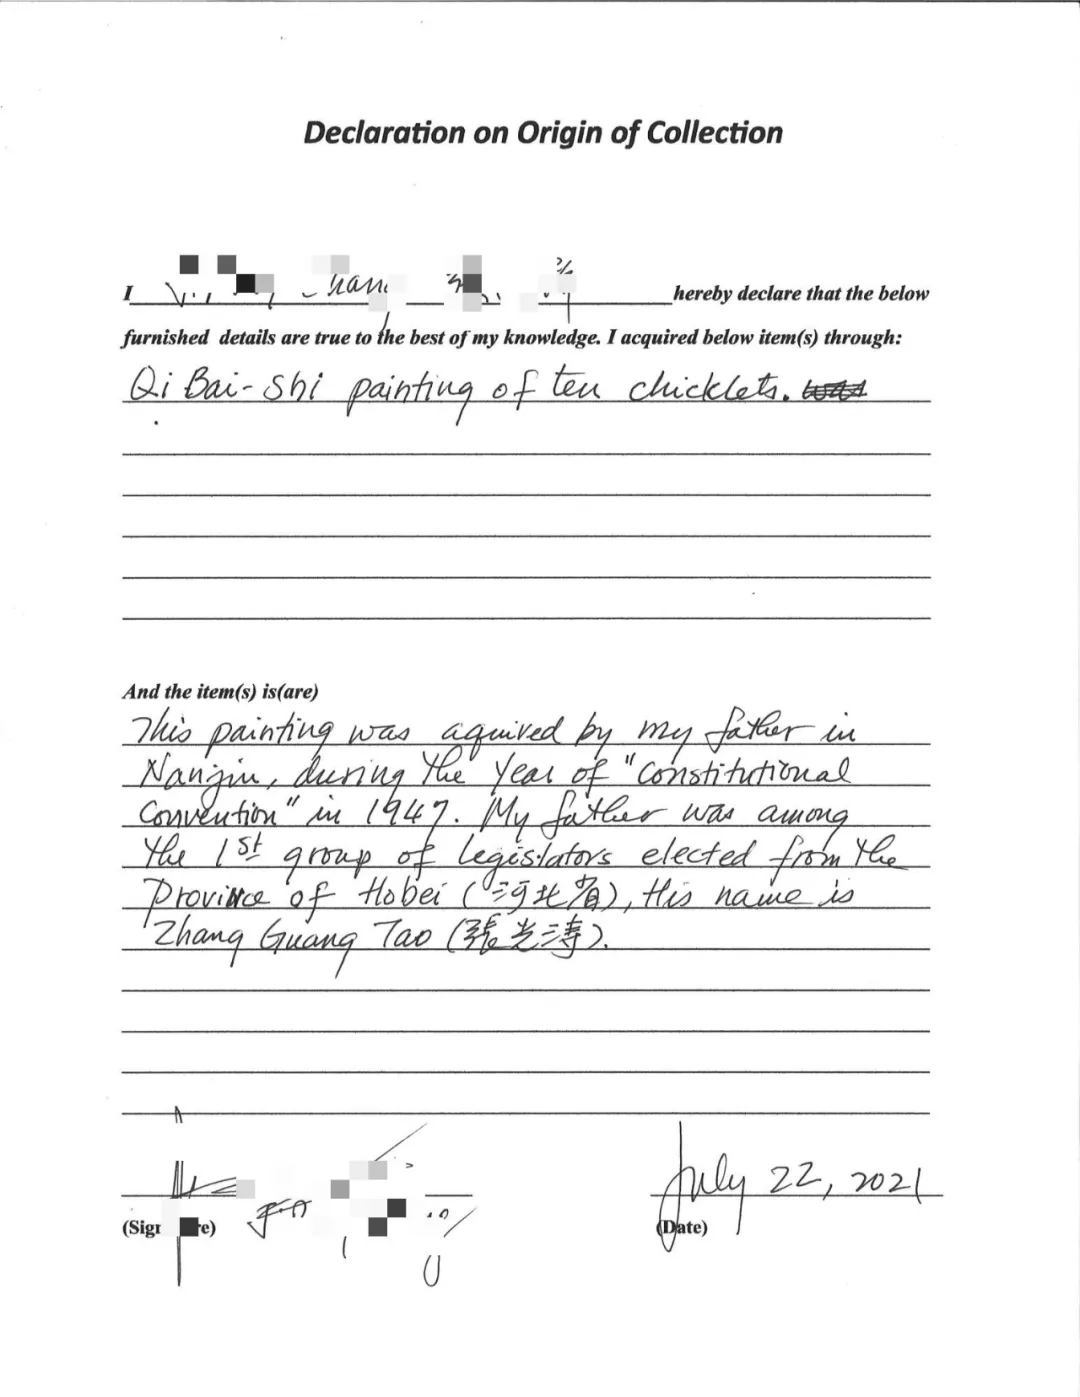 Declaration on Origin of Collection
I hereby declare that the below
furnished details are true to the best of my knowledge. I acquired below item(s) through:
Qi Bai-shi painting of ten chicklets.
And the item(s) is(are)
This painting was aquired by my father in
Nanjin, during the Year of "Constitutional
Convention" in 1947. My father was among
the 1st group of legislators elected from the
Province of Hobei (河北省), His name is
Zhang Guang Tao (張光濤).
July 22, 2021
(Date)